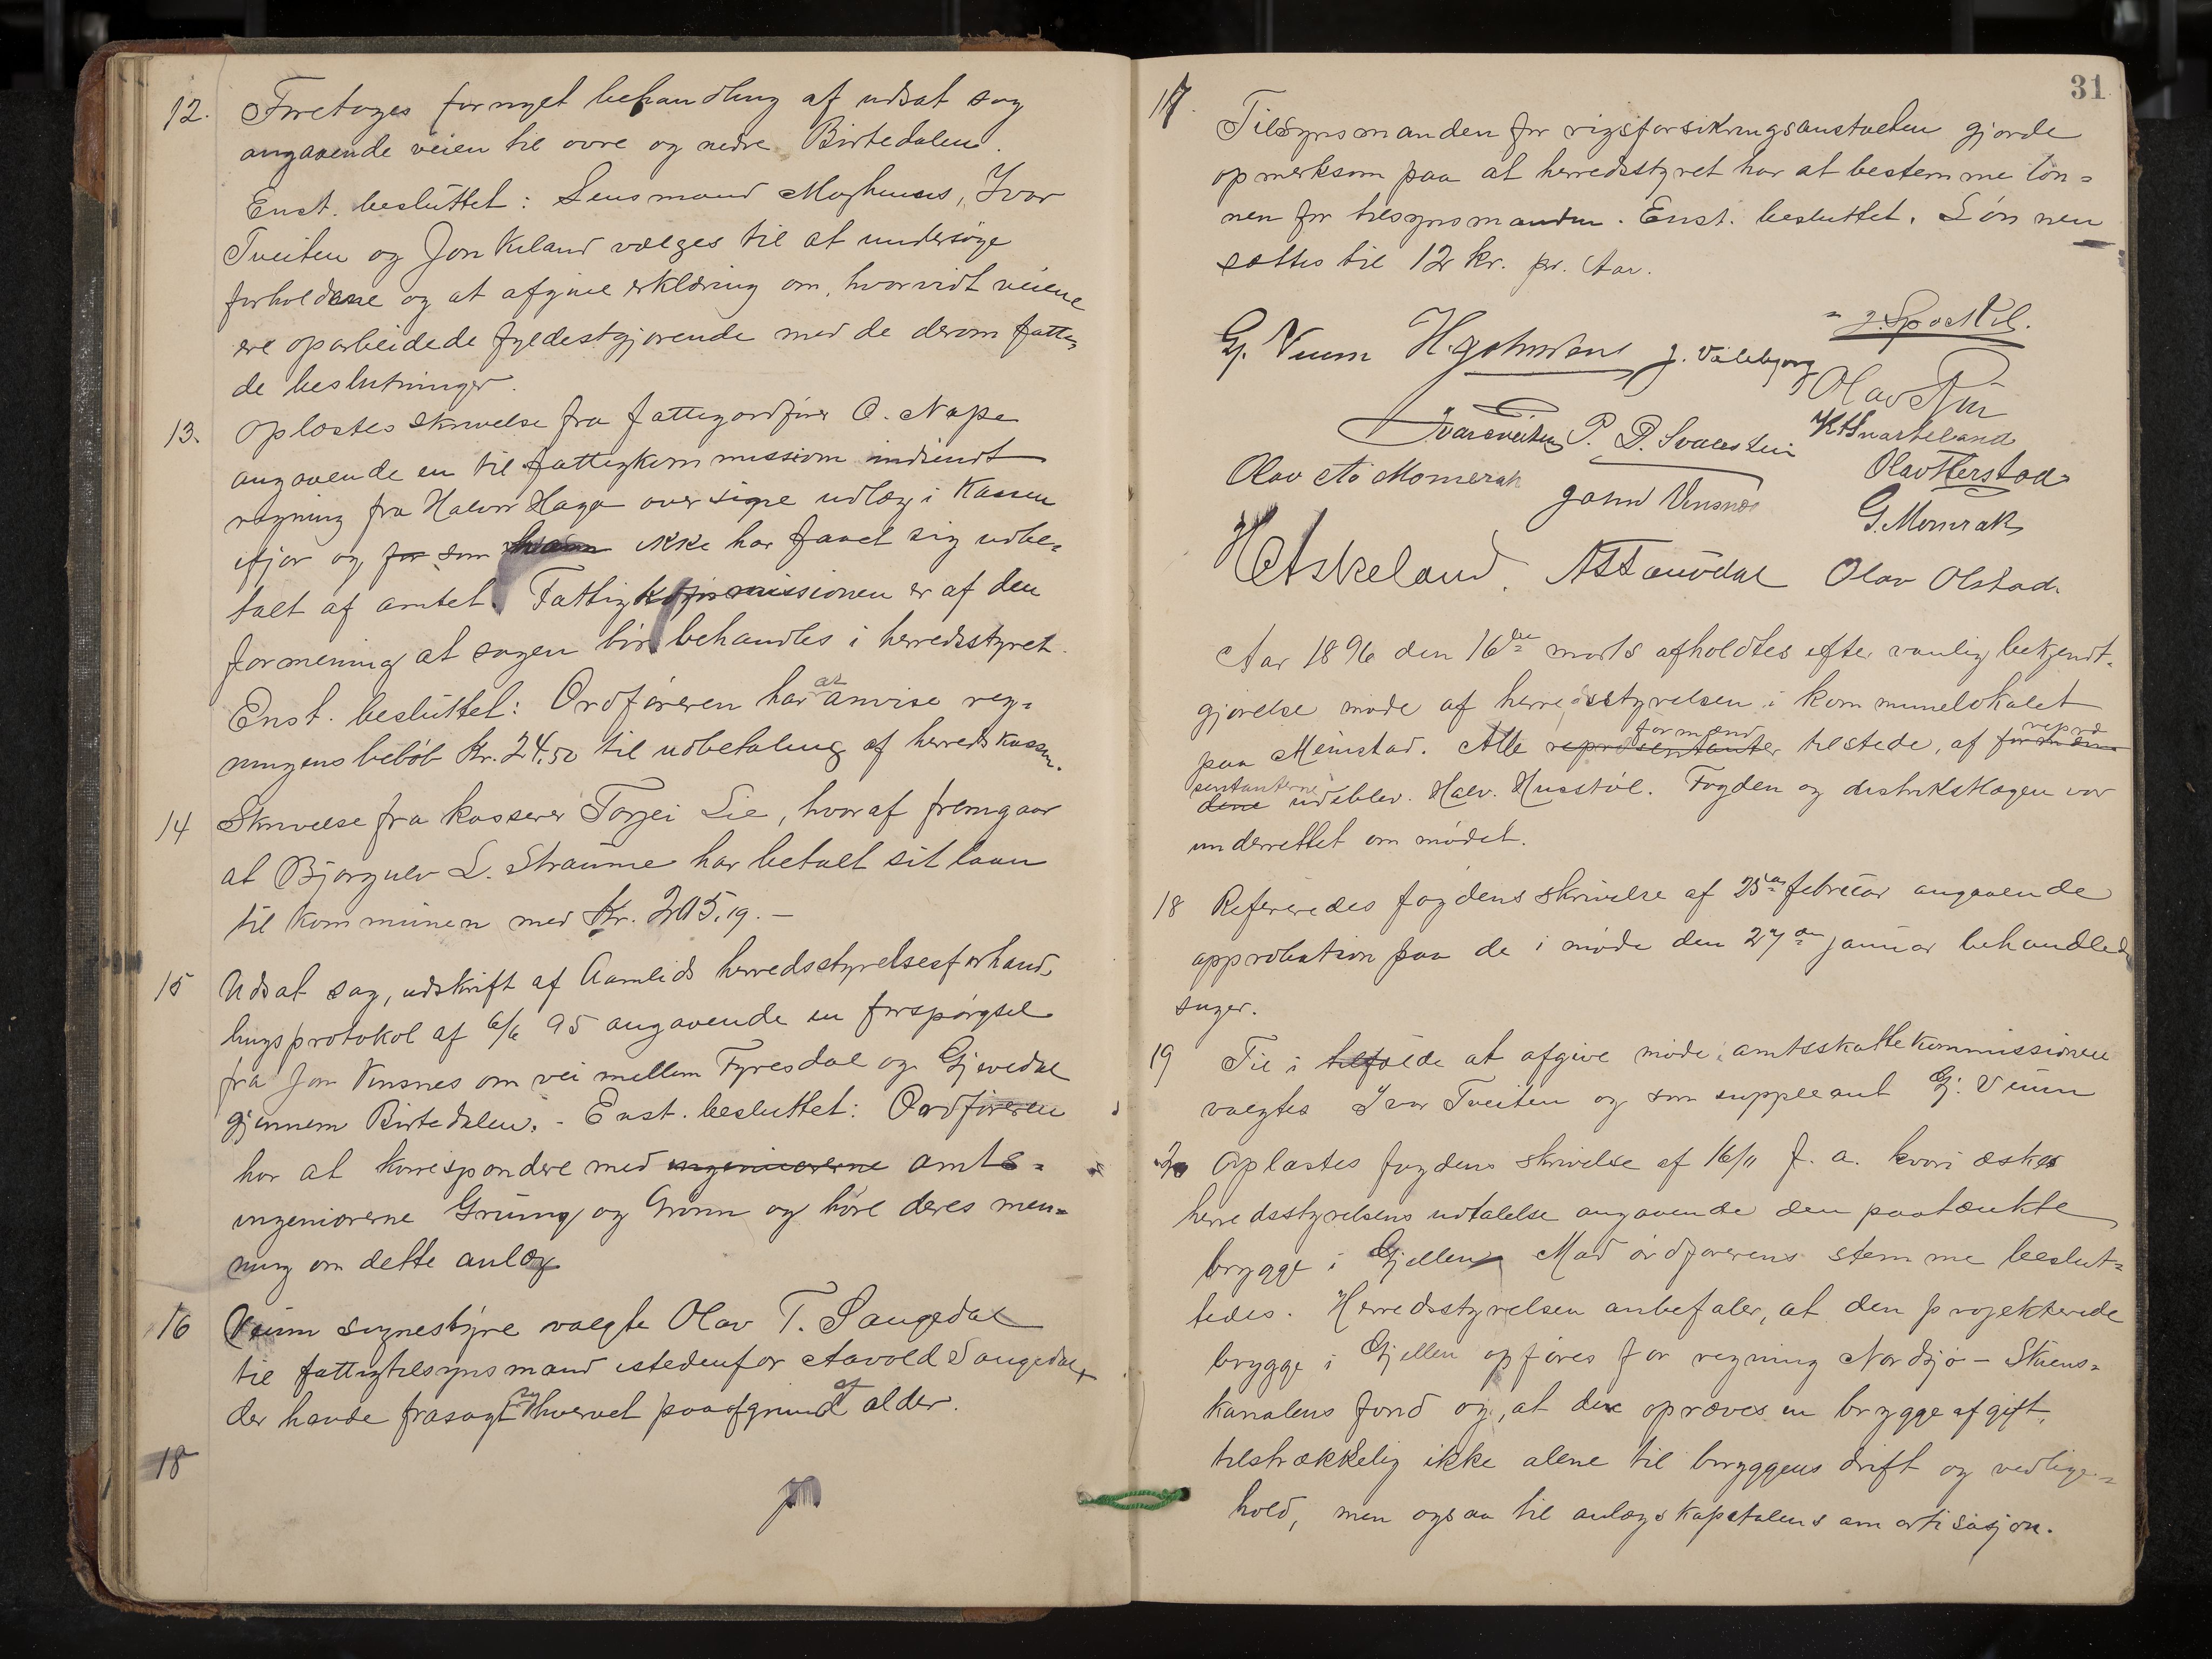 12. Foretoges fornyet behandling af udsat sag
angaaende veien til øvre og nedre Birtedalen.
Enst. besluttet: Lensmand Moghuus, Ivar
Tveiten og Jon Kiland vælges til at undersöge
forholdene og at afgive erklæring om, hvorvidt veiene
ere oparbeidede fyldestgjørende med de derom fatte-
de beslutninger.
13. Oplæstes skrivelse fra fattigordfører O. Nape
angaaende en til fattigkommissionen indsendt
regning fra Halvor Haga over sine udlæg i Kassen
ifjor og for som ikke har faaet sig udbe-
talt af amtet. Fattigkommissionen er af den
formening at sagen bör behandles i herredsstyret.
Enst. besluttet: Ordføreren har at anvise reg-
ningens belöb Kr. 24,50 til udbetaling af herredskassen.
14 Skrivelse fra kasserer Torjei Lie, hvoraf fremgaar
at Bjørgulv L. Straume har betalt sit laan
til kommunen med Kr. 205,19.–
15 Udsat sag, udskrift af Aamlids herredsstyrelsesforhand-
lingsprotokol af 6/6 95 angaaende en forspørgsel
fra Jon Vinsnes om vei mellem Fyresdal og Gjøvdal
gjennem Birtedalen. - Enst. besluttet: Ordføreren
har at korrespondere med ingeniørerne amts-
ingeniørerne Grüning og Grønn og høre deres men-
ning om dette anlæg
16 Veum sognestyre valgte Olav T. Saugedal
til fattigtilsynsmand istedenfor Aavold Saugedal,
der havde frasagt sig hvervet paa grund af alder.
18
17. 31
Tilsynsmanden for rigsforsikringsanstalten gjorde
opmerksom paa at herredsstyret har at bestemme løn-
nen for tilsynsmanden. Enst. besluttet. Lønnen
sættes til 12 kr. pr. Aar.
G. Veum H. J. Spokkel.
J. Vaalebjorg
Olav
Ivar Tveiten P. D. Svalestein K H Svarteland
Olav Aa Momrak John Vinsnes Olav Herstad
G. Momrak
H Askeland. Olav Olstad.
Aar 1896 den 16de marts afholdtes efter vanlig bekjendt-
gjørelse møde af herredsstyrelsen i kommunelokalet
paa Moinstad. Alle repræsentanter formænd tilstede, af formæn repræ
dene sentanterne udeblev. Halv. Husstøl. Fogden og distriktslægen var
underrettet om mödet.
18 Refereredes fogdens skrivelse af 25de februar angaaende
approbation paa de i møde den 27de januar behandlede
sager.
19 Til i tilfælde at afgive møde i amtsskattekommissionen
valgtes Ivar Tveiten og som suppleant Gj. Veum
20 Oplæstes fogdens skrivelse af 16/11 f. a. hvori æskes
herredsstyrelsens udtalelse angaaende den paatænkte
brygge i Gjellen. Mod ordførerens stemme beslut-
tedes. Herredsstyrelsen anbefaler, at den projekterede
brygge i Gjellen opføres for regning Nordsjø – Skiens-
kanalens fond og, at der opræves en bryggeafgift,
tilstrækkelig ikke alene til bryggens drift og vedlige-
hold, men ogsaa til anlægskapitalens amortisasjon.